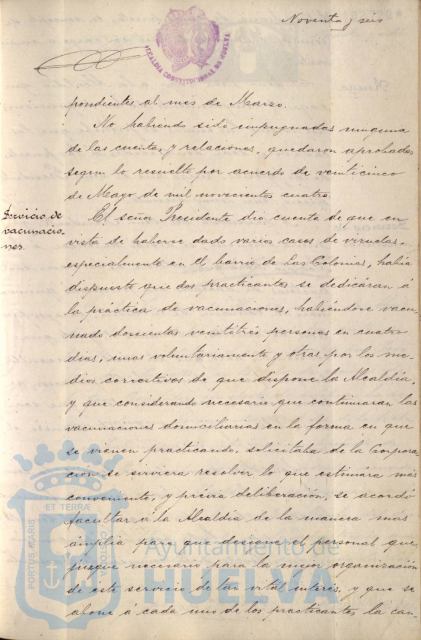 Noventa y seis
ALCALDIA CONSTITUCIONAL DE HUELVA
pondientes al mes de Marzo.
No habiendo sido impugnadas ninguna
de las cuentas y relaciones, quedaron aprobadas
segun lo resuelto por acuerdo de veinticinco
de Mayo de mil novecientos cuatro.
Servicio de
vacunacio-
nes.
El señor Presidente dió cuenta de que en
vista de haberse dado varios casos de viruelas,
especialmente en el barrio de Las Colonias, había
dispuesto que dos practicantes se dedicaran á
la práctica de vacunaciones, habiéndose vacu-
nado doscientas veintitrés personas en cuatro
dias, unas voluntariamente y otras por los me-
dios correctivos de que dispone la Alcaldía,
y que considerando necesario que continuaran las
vacunaciones domiciliarias en la forma en que
se vienen practicando, solicitaba de la Corpora-
cion se sirviera resolver lo que estimára más
conveniente, y prévia deliberación, se acordó
facultar á la Alcaldía de la manera más
amplia para que designe el personal que
juzgue necesario para la mejor organización
de este servicio de tan vital interés, y que se
abone á cada uno de los practicantes la can-
PORTUS MARIS
ET TERRÆ
CUSTODIA
Ayuntamiento de
HUELVA